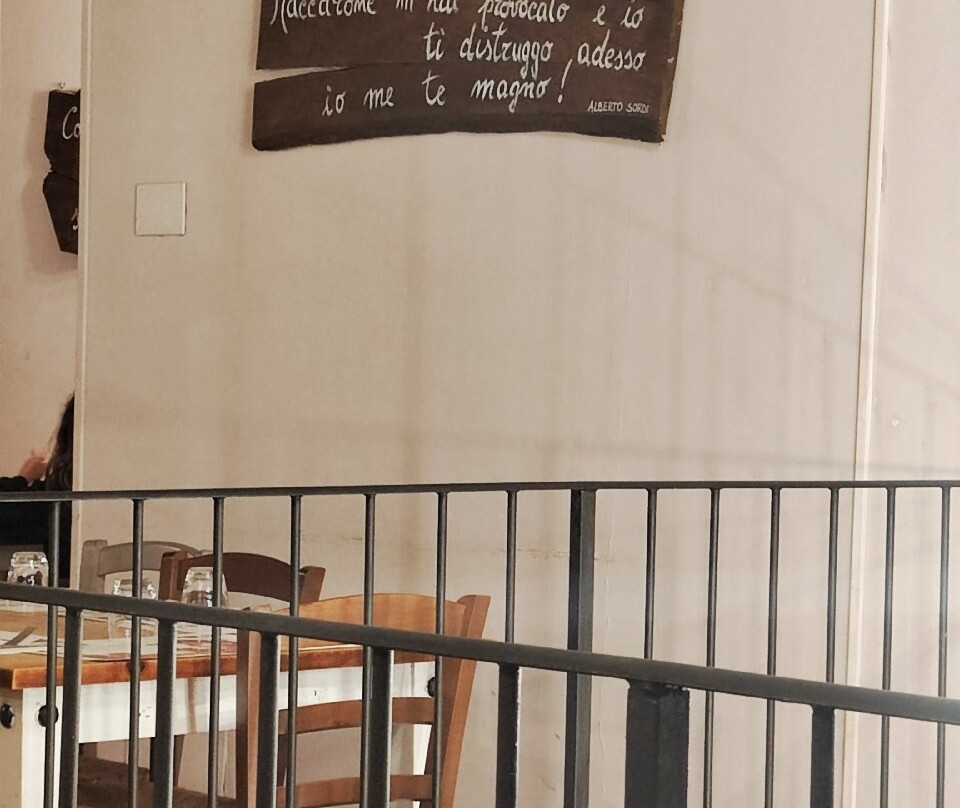 Maccarone m'hai provocato e io
ti distruggo, adesso
io me te magno!
ALBERTO SORDI
Co